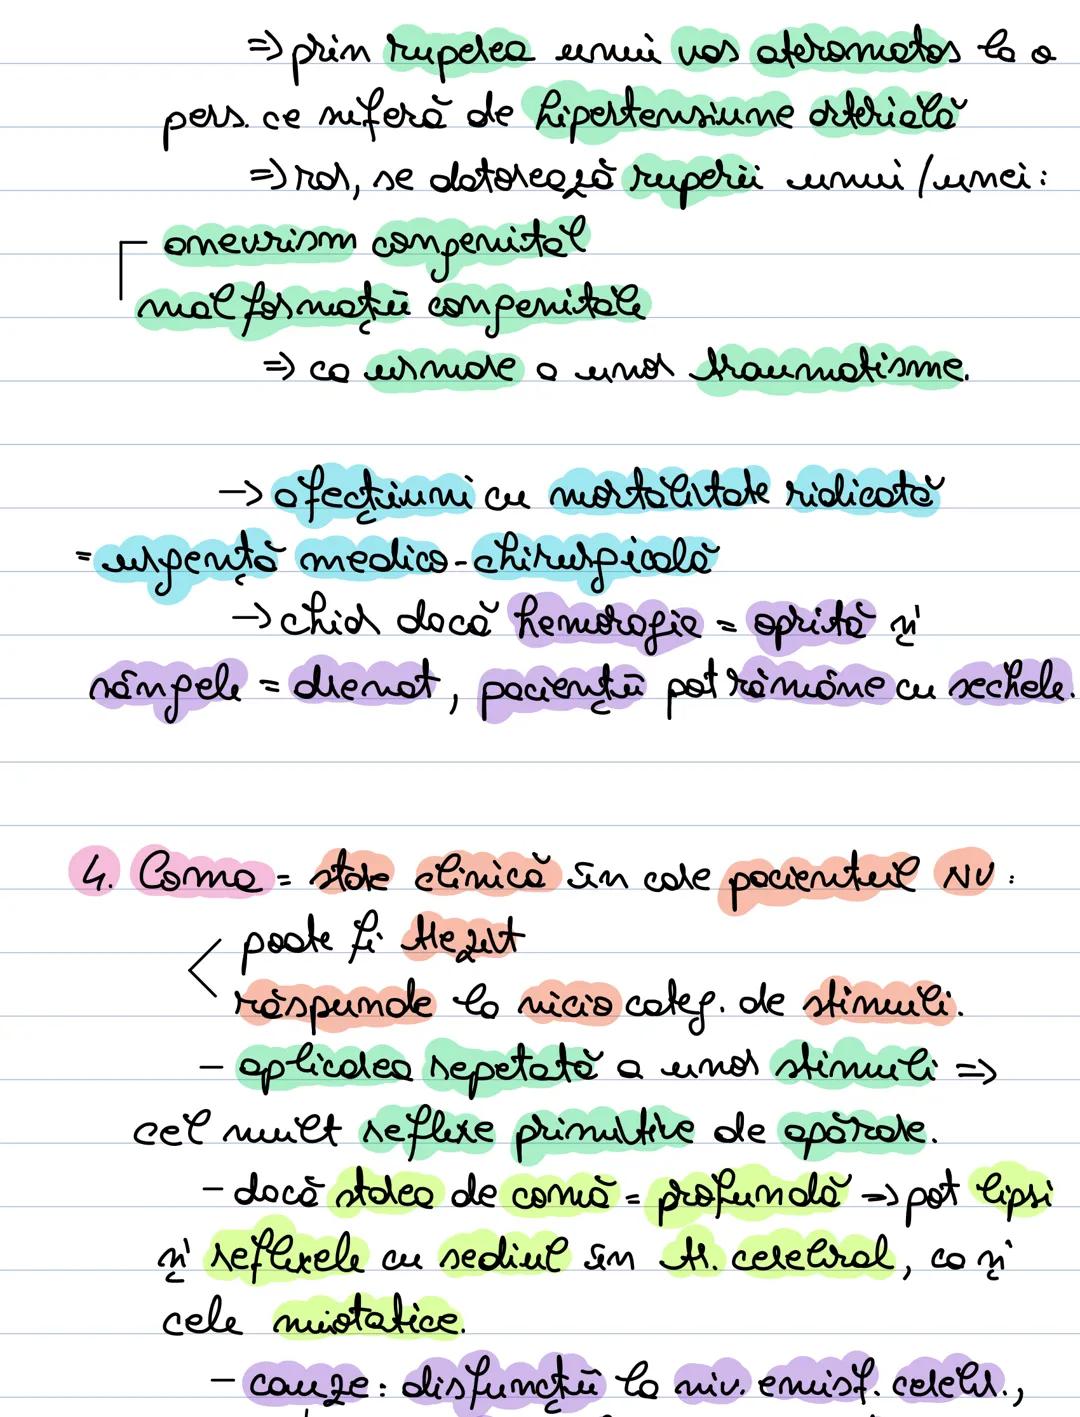 => prin ruperea unui vas ateromatos la o
pers. ce suferă de hipertensiune arterială
=> rar, se datorează ruperii unui/unei:
anevrism congenital
malformații congenitale
=> ca urmare a unor traumatisme.
-> afecțiuni cu mortalitate ridicată
= urgență medico-chirurgicală
-> chiar dacă hemoragie = oprită și
sângele = drenat, pacienții pot rămâne cu sechele.
4. Coma = stare clinică în care pacientul NU:
poate fi trezit
răspunde la nicio categ. de stimuli.
- aplicarea repetată a unor stimuli =>
cel mult reflexe primitive de apărare.
- dacă starea de comă = profundă => pot lipsi
și reflexele cu sediul în tr. cerebral, ca și
cele miotatice.
- cauze: disfuncții la niv. emisf. cerebr.,